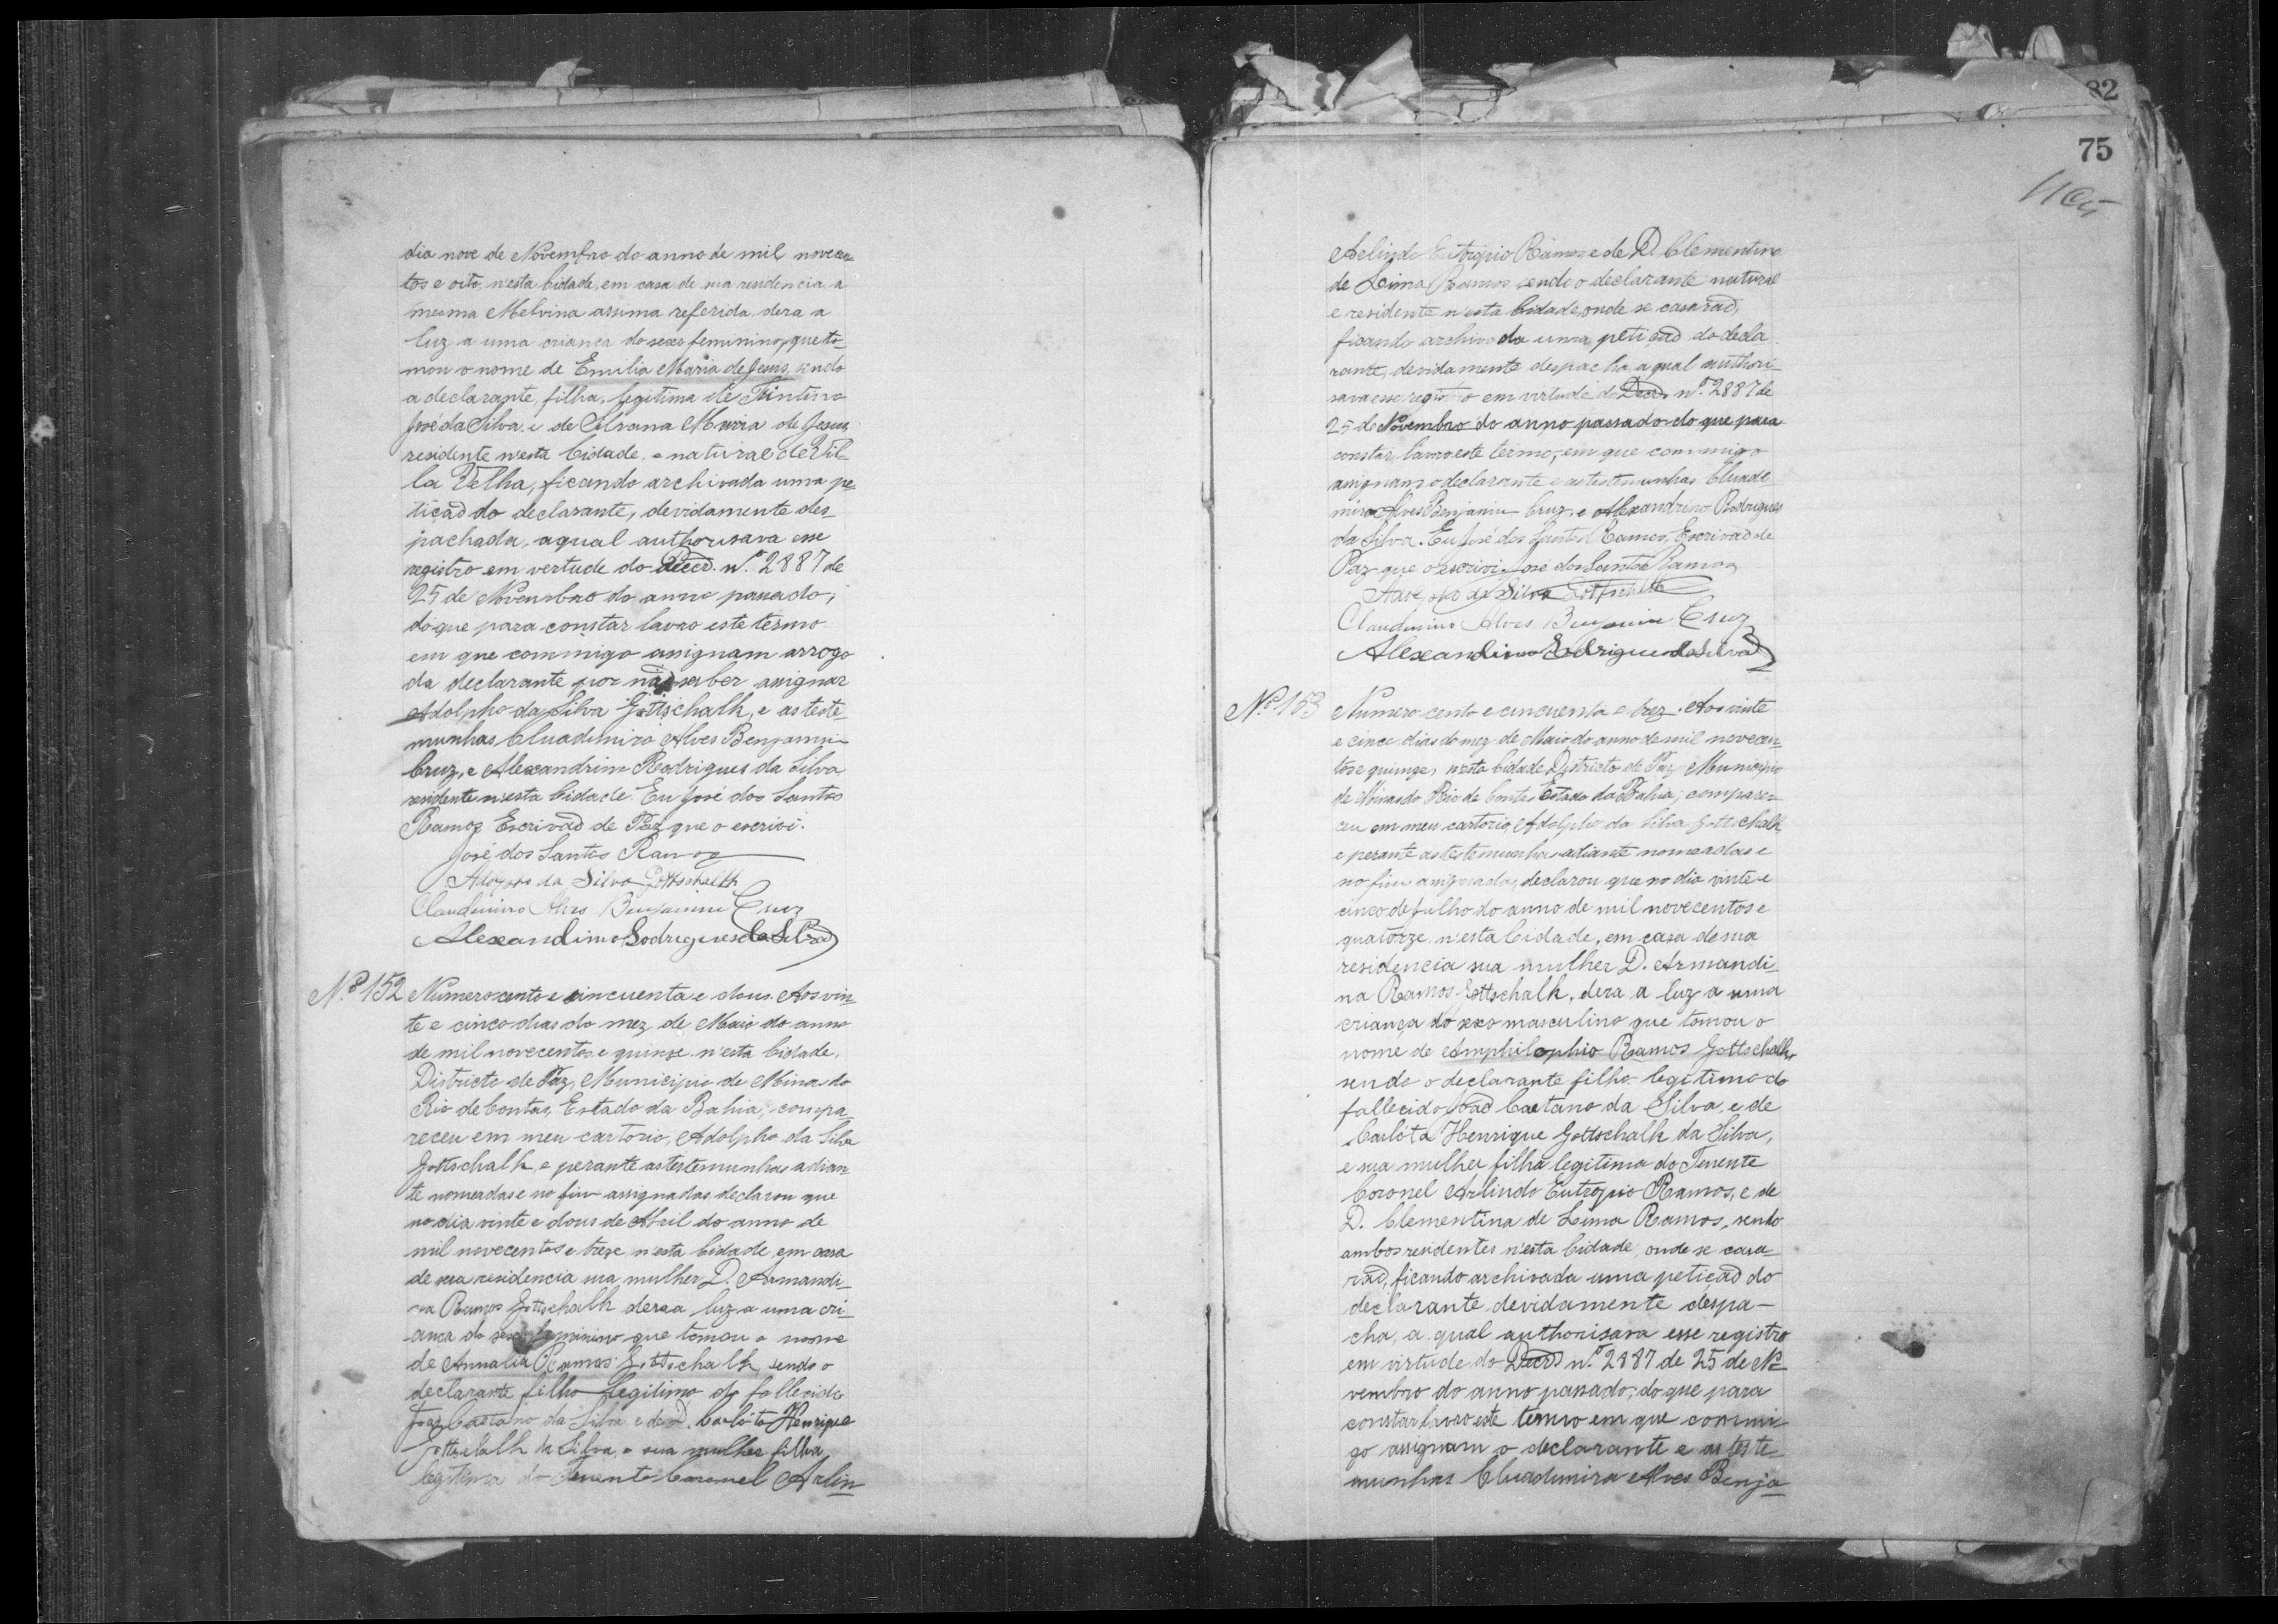 dia nove de Novembro do anno de mil novecen-
tos e oito, n'esta Cidade, em casa de sua residencia, a
mesma Melvina assima referida dera a
luz a uma criança do sexo feminino, que to-
mou o nome de Emilia Maria de Jesus, sendo
a declarante, filha legitima de
José da Silva, e de Maria de Jesus,
residente n'esta Cidade, e natural de Vil-
la Velha, ficando archivada uma pe-
tiçaõ do declarante, devidamente des-
pachada, a qual authorisava esse
registro em vertude do Decr. n.º 2887 de
25 de Novembro do anno passado;
do que para constar lavro este termo
em que commigo assignam arrogo
da declarante por naõ saber assignar
Adolpho da Silva Gottschalk, e as teste-
munhas Cluadimiro Alves Benjamin
Cruz, e Alexandrino Rodrigues da Silva
residente n'esta Cidade. Eu José dos Santos
Ramos Escrivaõ de Paz que o escrivi.
José dos Santos Ramos
Adolpho da Silva Gottschalk
Claudimiro Alves Benjamin Cruz
Alexandino Rodrigues da Silva
N.º 152 Numero cento e cincuenta e dous. Aos vin-
te e cinco dias do mez de Maio do anno
de mil novecentos e quinze n'esta Cidade,
Districto de Paz, Municipio de Minas do
Rio de Contas, Estado da Bahia, compa-
receu em meu cartorio, Adolpho da Silva
Gottschalk, e perante as testemunhas adian-
te nomeadas e no fim assignadas, declarou que
no dia vinte e dous de Abril do anno de
mil novecentos e treze, n'esta Cidade, em casa
de sua residencia sua mulher D. Armandi-
na Ramos Gottschalk dera a luz a uma cri-
ança do sexo feminino que tomou o nome
de Annalia Ramos Gottschalk, sendo o
declarante filho legitimo do fallecido
Joaõ Caetano da Silva e de D. Carlóta Henrique
Gottschalk da Silva, e sua mulher filha
legitima do Tenente Coronel Arlin-
82
75
Arlindo Eutropio Ramos e de D. Clementina
de Lima Ramos sendo o declarante natural
e residente n'esta Cidade, onde se casaraõ,
ficando archivada uma petiçaõ do decla
rante, devidamente despacha, a qual authori-
sava esse registro em virtude do Decr. n.º 2887 de
25 de Novembro do anno passado do que para
constar lavro este termo, em que commigo
assignam o declarante e as testemunhas Cluadi
miro Alves Benjamin Cruz, e Alexandrino Rodrigues
da Silva. Eu José dos Santos Ramos, Escrivaõ de
Paz que o escrivi. José dos Santos Ramos
Adolpho da Silva Gottschalk
Claudimiro Alves Benjamin Cruz
Alexandino Rodrigues da Silva
N.º 153 Numero cento e cincuenta e trez. Aos vinte
e cinco dias do mez de Maio do anno de mil novecen-
tos e quinze, n'esta Cidade Districto de Paz Municipio
de Minas do Rio de Contas Estado da Bahia, compare-
ceu em meu cartorio, Adolpho da Silva Gottschalk
e perante as testemunhas adiante nomeadas e
no fim assignadas, declarou que no dia vinte e
cinco de Julho do anno de mil novecentos e
quatorze n'esta Cidade, em casa de sua
residencia sua mulher D. Armandi-
na Ramos Gottschalk, dera a luz a uma
criança do sexo masculino que tomou o
nome de Amphilophio Ramos Gottschalk,
sendo o declarante filho legitimo do
fallecido Joaõ Caetano da Silva, e de
Carlóta Henrique Gottschalk da Silva,
e sua mulher filha legitima do Tenente
Coronel Arlindo Eutropio Ramos, e de
D. Clementina de Lima Ramos, sendo
ambos residentes n'esta Cidade, onde se casa-
raõ, ficando archivada uma petiçaõ do
declarante devidamente despa-
cha, a qual authorisava esse registro
em virtude do Decr. n.º 2887 de 25 de No-
vembro do anno passado; do que para
constar lavro este termo em que commi-
go assignam o declarante e as teste-
munhas Cluadimiro Alves Benja-